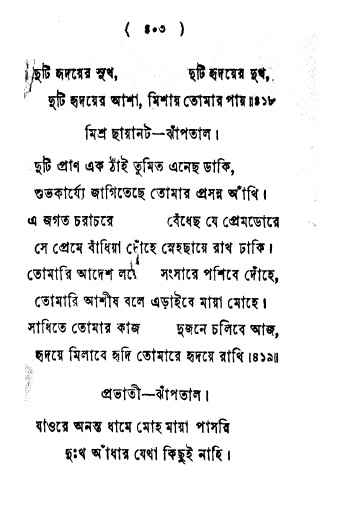 ( ৪০৩ )
দুটি হৃদয়ের সুখ, দুটি হৃদয়ের দুখ,
দুটি হৃদয়ের আশা, মিশায় তোমার পায়॥৪১৮
মিশ্র ছায়ানট—ঝাঁপতাল।
দুটি প্রাণ এক ঠাঁই তুমিত এনেছ ডাকি,
শুভকার্য্যে জাগিতেছে তোমার প্রসন্ন আঁখি।
এ জগত চরাচরে বেঁধেছ যে প্রেমডোরে
সে প্রেমে বাঁধিয়া দোঁহে স্নেহছায়ে রাখ ঢাকি।
তোমারি আদেশ লয়ে সংসারে পশিবে দোঁহে,
তোমারি আশীষ বলে এড়াইবে মায়া মোহে।
সাধিতে তোমার কাজ দুজনে চলিবে আজ,
হৃদয়ে মিলাবে হৃদি তোমারে হৃদয়ে রাখি।৪১৯॥
প্রভাতী—ঝাঁপতাল।
যাওরে অনন্ত ধামে মোহ মায়া পাসরি
দুঃখ আঁধার যেথা কিছুই নাহি।